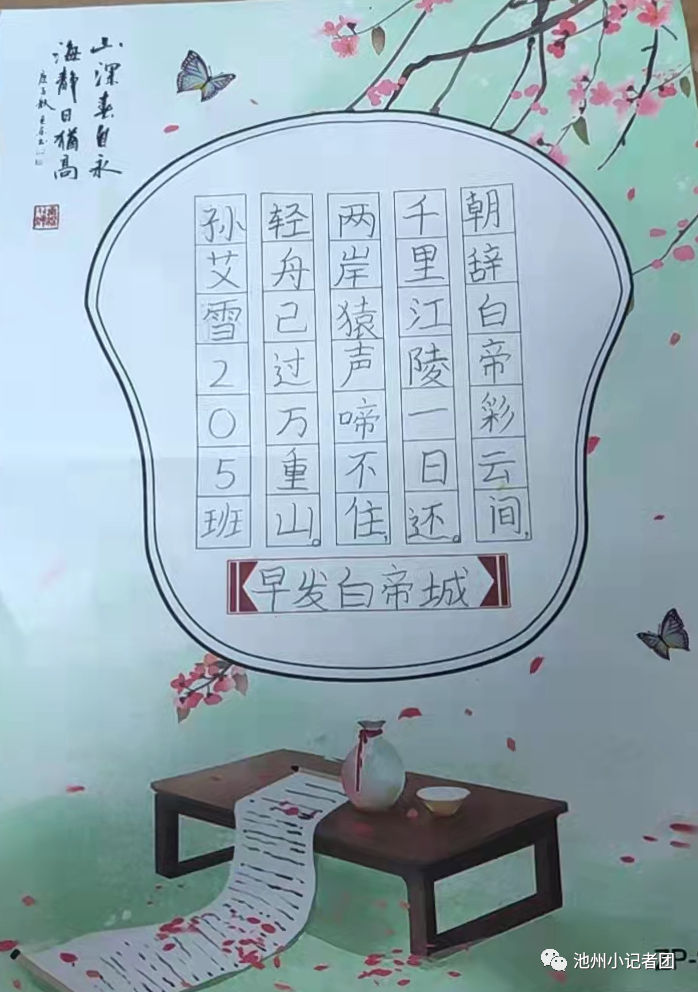 朝辞白帝彩云间,
千里江陵一日还。
两岸猿声啼不住,
轻舟已过万重山。
孙艾雪205班
早发白帝城
山深春自永
海静日犹高
池州小记者团